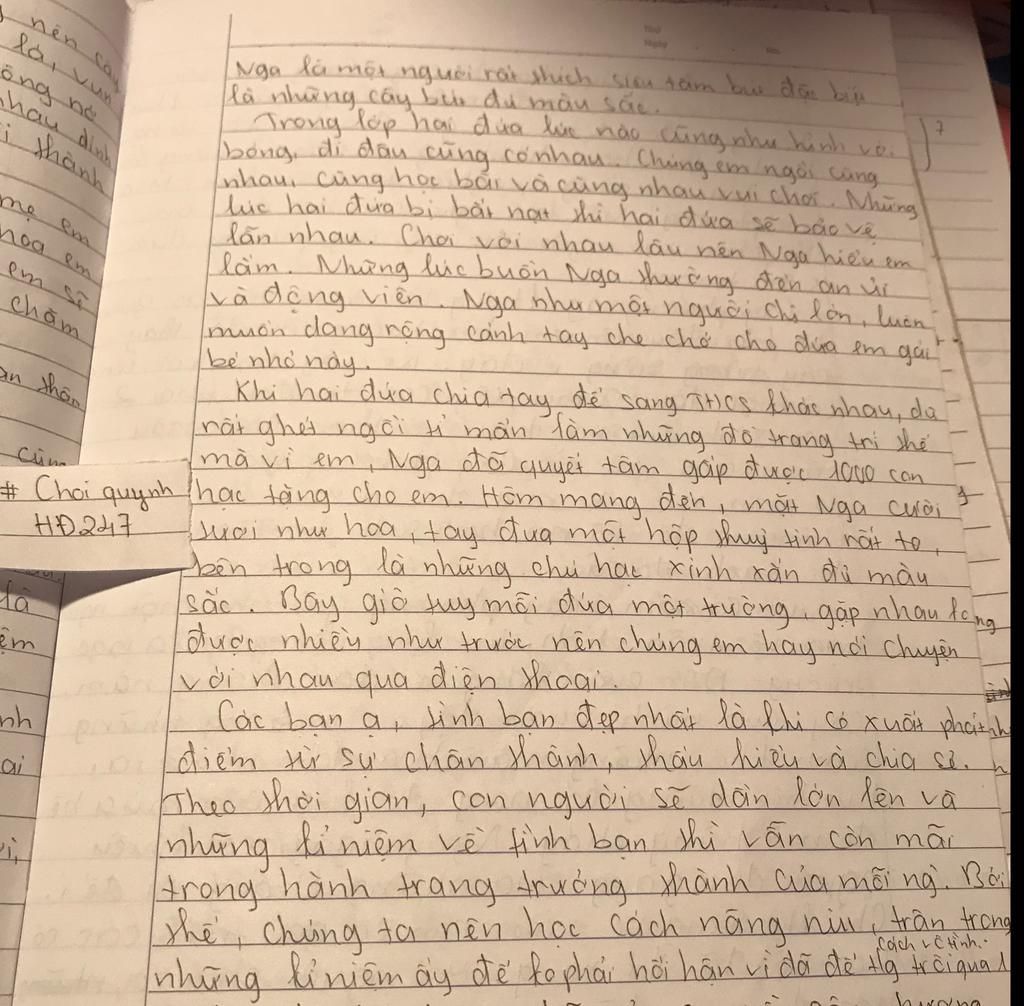 nên cây
là, vun
nhau dính
thành
mẹ em
hoa em
em sẽ
chăm
thân
Nga là một người rất thích sưu tầm bút đặc biệt
là những cây bút đủ màu sắc.
Trong lớp hai đứa lúc nào cũng như hình với
bóng, đi đâu cũng có nhau. Chúng em ngồi cùng
nhau, cùng học bài và cùng nhau vui chơi. Những
lúc hai đứa bị bắt nạt thì hai đứa sẽ bảo vệ
lẫn nhau. Chơi với nhau lâu nên Nga hiểu em
lắm. Những lúc buồn Nga thường đến an ủi
và động viên. Nga như một người chị lớn, luôn
muốn dang rộng cánh tay che chở cho đứa em gái
bé nhỏ này.
Khi hai đứa chia tay để sang THCS khác nhau, dù
rất ghét ngồi tỉ mẩn làm những đồ trang trí thế
mà vì em, Nga đã quyết tâm gấp được 1000 con
hạc tặng cho em. Hôm mang đến, mặt Nga cười
tươi như hoa, tay đưa một hộp thuỷ tinh rất to,
bên trong là những chú hạc xinh xắn đủ màu
sắc. Bây giờ tuy mỗi đứa một trường, gặp nhau kong
được nhiều như trước nên chúng em hay nói chuyện
với nhau qua điện thoại.
Các bạn ạ, tình bạn đẹp nhất là khi có xuất phát
điểm từ sự chân thành, thấu hiểu và chia sẻ.
Theo thời gian, con người sẽ dần lớn lên và
những kỉ niệm về tình bạn thì vẫn còn mãi
trong hành trang trưởng thành của mỗi ng`. Bởi
thế, chúng ta nên học cách nâng niu, trân trọng
những kỉ niệm ấy để ko phải hối hận vì đã để tg trôi qua 1
cách vô tình.
# Choi quynh
HĐ247